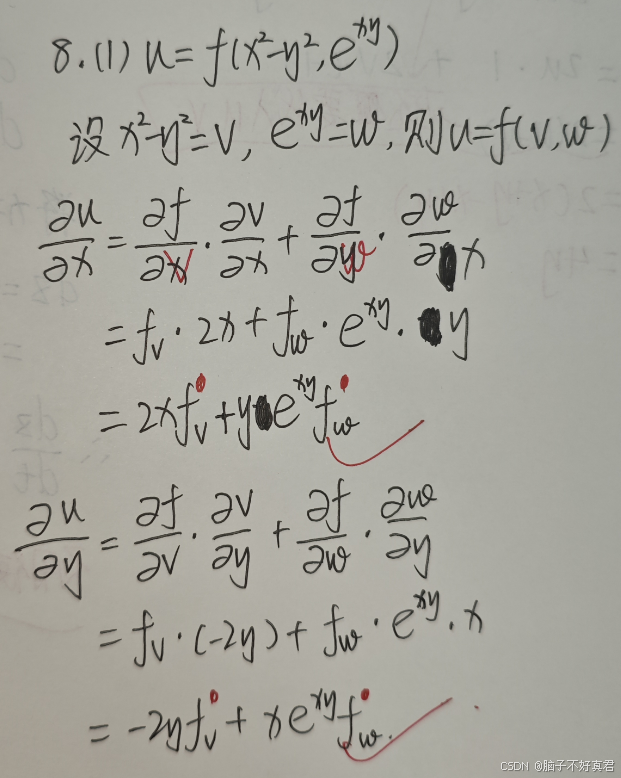 8.(1) u=f(x²-y²,e^{xy})
设 x²-y²=v, e^{xy}=w, 则u=f(v,w)
∂u/∂x = ∂f/∂v · ∂v/∂x + ∂f/∂w · ∂w/∂x
= f_v · 2x + f_w · e^{xy} · y
= 2xf'_v + ye^{xy}f'_w
∂u/∂y = ∂f/∂v · ∂v/∂y + ∂f/∂w · ∂w/∂y
= f_v · (-2y) + f_w · e^{xy} · x
= -2yf'_v + xe^{xy}f'_w.
CSDN @脑子不好真君